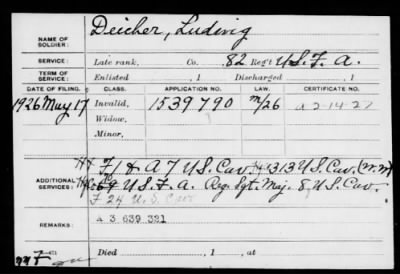 NAME OF SOLDIER: Deicher, Ludwig
SERVICE: Late rank, Co. 82 Reg't U.S.F.A.
TERM OF SERVICE: Enlisted , 1 Discharged , 1
DATE OF FILING. CLASS. APPLICATION NO. LAW. CERTIFICATE NO.
1926 May 17 Invalid, 1539790 m/26 a 2-14-27
Widow,
Minor,
ADDITIONAL SERVICES: F 1 & A 7 U.S. Cav. 313 U.S. Cav. (W.W.)
69 U.S.F.A. Reg. Sgt. Maj. 8 U.S. Cav.
F 24 U.S. Cav
REMARKS: A 3 639 321
Died , 1 , at